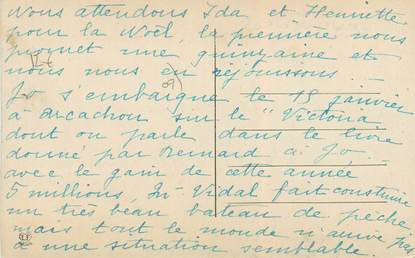 Nous attendons Ida et Henriette
pour la Noël, la première nous
promet une quinzaine et
nous nous en réjouissons _
Jo s'embarque le 15 janvier
à Arcachon sur le "Victoria
dont on parle dans le livre
donné par Bernard à Jo _
avec le gain de cette année
5 millions, Mr Vidal fait construire
un très beau bateau de pêche,
mais tout le monde n'arrive pas
à une situation semblable.